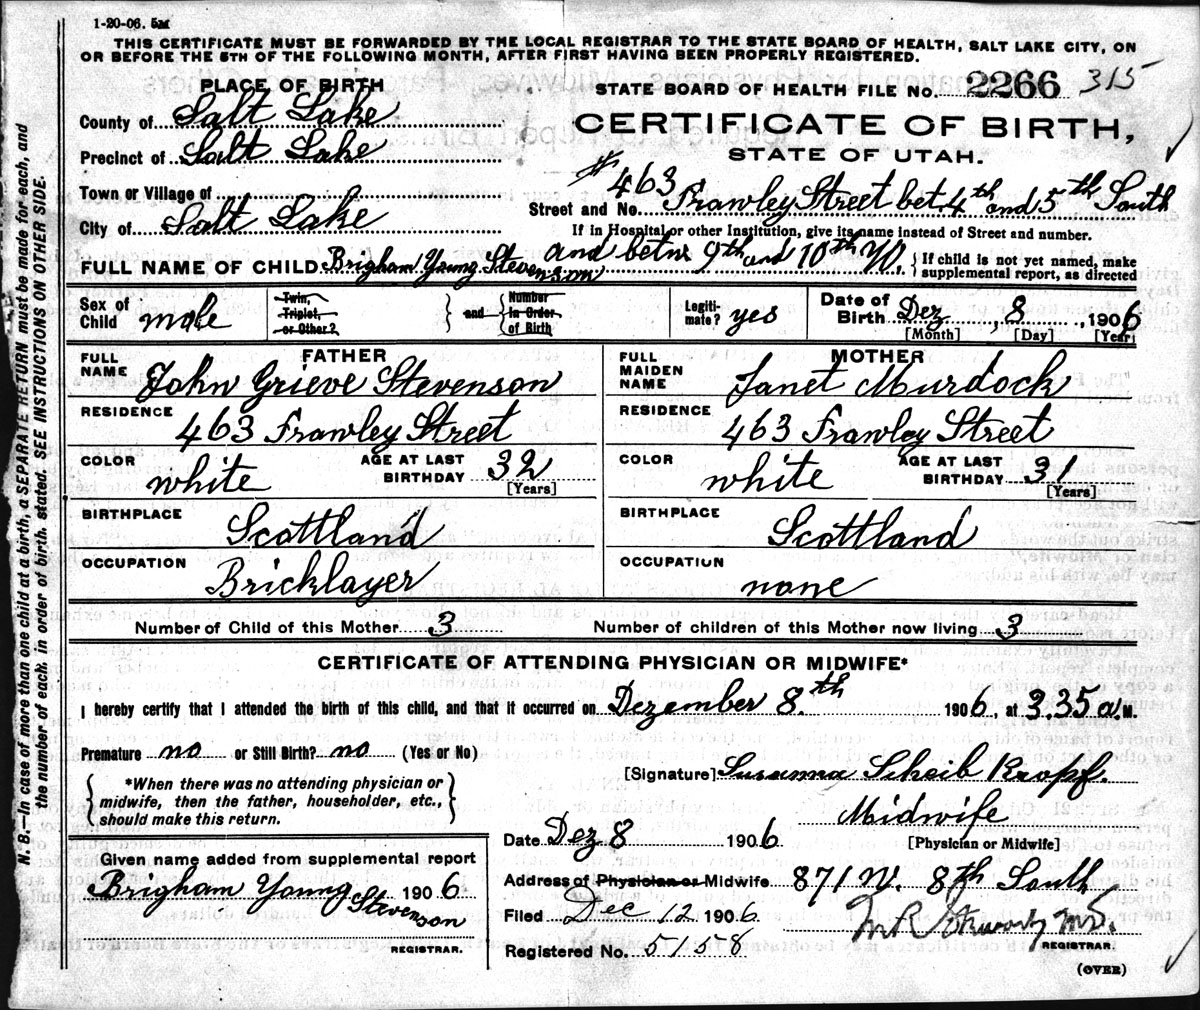 1-20-06. 5M
THIS CERTIFICATE MUST BE FORWARDED BY THE LOCAL REGISTRAR TO THE STATE BOARD OF HEALTH, SALT LAKE CITY, ON
OR BEFORE THE 5TH OF THE FOLLOWING MONTH, AFTER FIRST HAVING BEEN PROPERLY REGISTERED.
PLACE OF BIRTH
County of Salt Lake
Precinct of Salt Lake
Town or Village of
City of Salt Lake
STATE BOARD OF HEALTH FILE No. 2266 315
CERTIFICATE OF BIRTH,
STATE OF UTAH.
Street and No. #463 Frawley Street bet. 4th and 5th South
If in Hospital or other Institution, give its name instead of Street and number.
and betw 9th and 10th W.
FULL NAME OF CHILD Brigham Young Stevenson
If child is not yet named, make
supplemental report, as directed
Sex of Child male
Twin, Triplet, or Other?
and
Number in Order of Birth
Legitimate? yes
Date of Birth Dez, 8, 1906
[Month] [Day] [Year]
FATHER
FULL NAME John Grieve Stevenson
RESIDENCE 463 Frawley Street
COLOR white AGE AT LAST BIRTHDAY 32
[Years]
BIRTHPLACE Scottland
OCCUPATION Bricklayer
MOTHER
FULL MAIDEN NAME Janet Murdock
RESIDENCE 463 Frawley Street
COLOR white AGE AT LAST BIRTHDAY 31
[Years]
BIRTHPLACE Scottland
OCCUPATION none
Number of Child of this Mother 3 Number of children of this Mother now living 3
CERTIFICATE OF ATTENDING PHYSICIAN OR MIDWIFE*
I hereby certify that I attended the birth of this child, and that it occurred on Dezember 8.th 1906, at 3.35 a.M.
Premature no or Still Birth? no (Yes or No)
*When there was no attending physician or
midwife, then the father, householder, etc.,
should make this return.
[Signature] Susanna Scheib Kropf.
Midwife
[Physician or Midwife]
Date Dez 8 1906
Address of Physician or Midwife 871 W. 8th South
Filed Dec 12 1906
M.D.
REGISTRAR.
Registered No. 5158
(OVER)
Given name added from supplemental report
Brigham Young Stevenson 1906
REGISTRAR.
N. B.—In case of more than one child at a birth, a SEPARATE RETURN must be made for each, and
the number of each, in order of birth, stated. SEE INSTRUCTIONS ON OTHER SIDE.